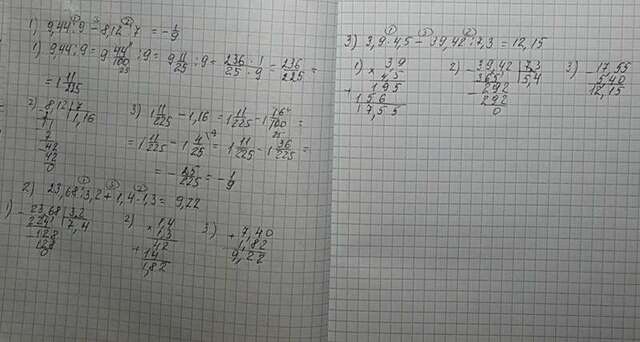 1) 9,44 : 9 - 8,12 : 7 = -1/9
1) 9,44 : 9 = 9 44/100 : 9 = 9 11/25 : 9 = 236 · 1/25 · 9 = 236/225 =
= 1 11/225
2) 8,12 | 7
7 | 1,16
42
42
0
3) 1 11/225 - 1,16 = 1 11/225 - 1 16/100 =
= 1 11/225 - 1 4/25 = 1 11/225 - 1 36/225 =
= - 25/225 = - 1/9
2) 23,68 : 3,2 + 1,4 · 1,3 = 9,22
1) - 23,68 | 3,2
224 | 7,4
- 128
128
0
2) × 1,4
1,3
+ 42
14
1,82
3) + 7,40
1,82
9,22
3) 3,9 · 4,5 - 39,42 : 7,3 = 12,15
1) × 39
4,5
+ 195
156
17,55
2) - 39,42 | 7,3
365 | 5,4
- 292
292
0
3) - 17,55
5,40
12,15